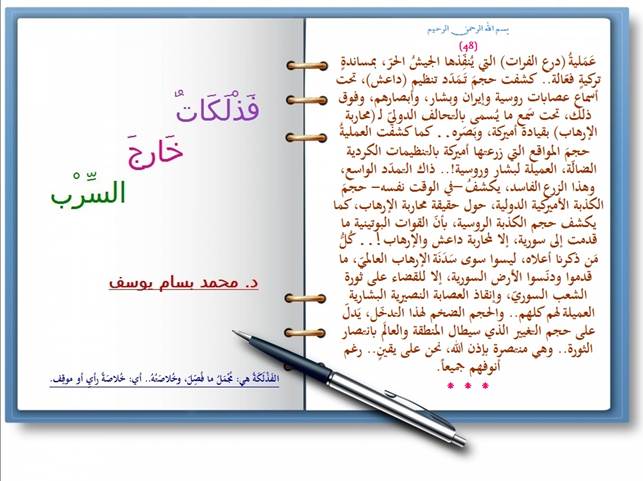 بسم الله الرحمن الرحيم
(48)
عَمَليةُ (درع الفرات) التي يُنفِّذها الجيشُ الحرّ، بمساندةٍ
تركيةٍ فعّالة.. كشفت حجمَ تَمَدّد تنظيم (داعش)، تحت
أسماع عصابات روسية وإيران وبشار، وأبصارهم، وفوق
ذلك، تحت سَمع ما يُسمى بالتحالف الدوليّ لـ (محاربة
الإرهاب) بقيادة أميركة، وبَصَره.. كما كشفت العمليةُ
حجمَ المواقع التي زرعتها أميركة بالتنظيمات الكردية
الضالّة، العميلة لبشار وروسية!.. ذاك التمدّد الواسع،
وهذا الزرع الفاسد، يكشفُ –في الوقت نفسه– حجمَ
الكذبة الأميركية الدولية، حول حقيقة محاربة الإرهاب، كما
يكشف حجم الكذبة الروسية، بأنّ القوات البوتينية ما
قدمت إلى سورية، إلا لمحاربة داعش والإرهاب!.. كُلُّ
مَن ذكرنا أعلاه، ليسوا سوى سَدَنَة الإرهاب العالميّ، ما
قدموا ودنّسوا الأرض السورية، إلا للقضاء على ثورة
الشعب السوريّ، وإنقاذ العصابة النصيرية البشارية
العميلة لهم كلهم.. والحجم الضخم لهذا التدخّل، يدلّ
على حجم التغيير الذي سيطال المنطقة والعالم بانتصار
الثورة.. وهي منتصرة بإذن الله، نحن على يقينٍ.. رغم
أنوفهم جميعاً.
* * *
فَذْلَكَاتٌ
خَارِجَ
السِّرْب
د. محمد بسام يوسف
الفَذْلَكَةُ هيَ: مُجْمَلُ ما فُصِّلَ، وخُلاصَتُهُ.. أي: خُلاصَةُ رأيٍ أو موقِف.